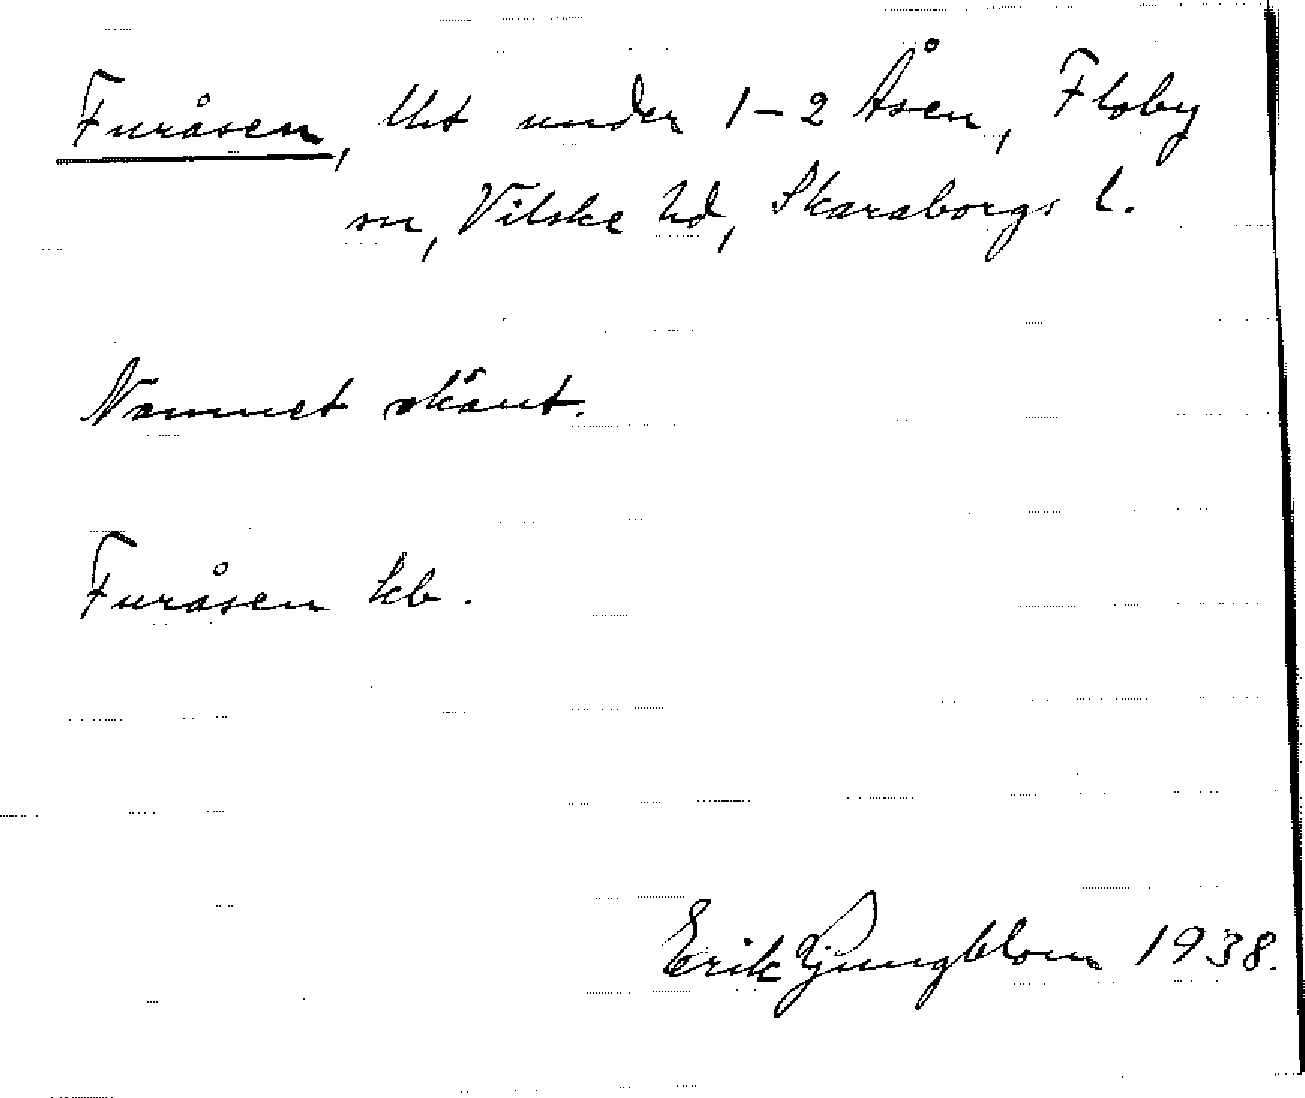 Furåsen, lht under 1-2 Åsen, Floby
sn, Vilske hd, Skaraborgs l.
Namnet okänt.
Furåsen kb.
Erik Ljungblom 1938.